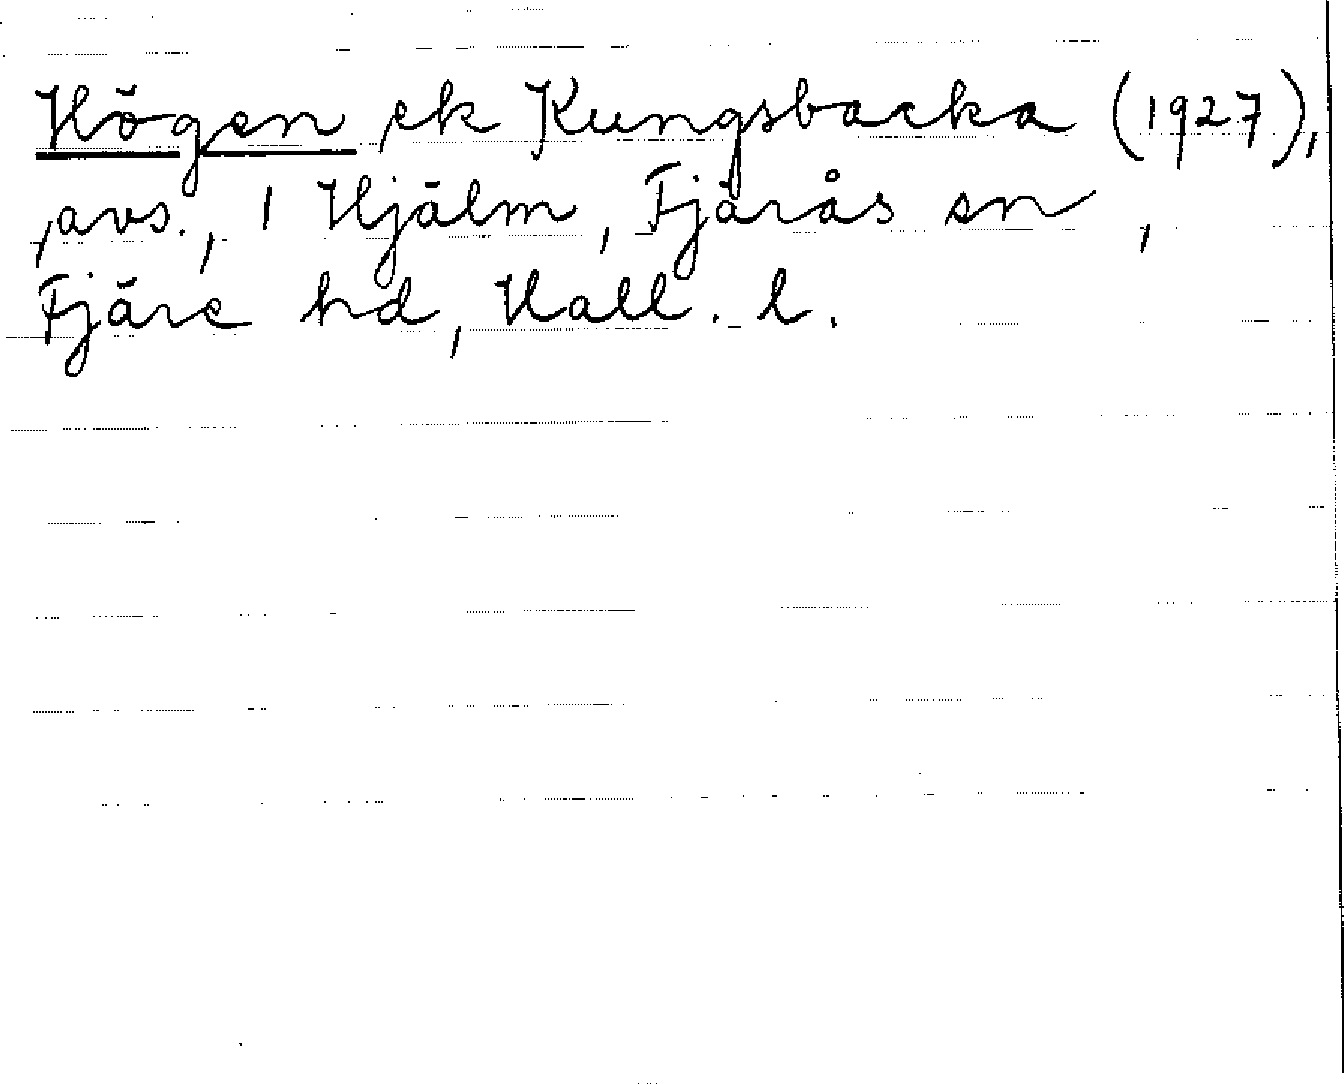 Högen ek Kungsbacka (1927),
avs., 1 Hjälm, Fjärås sn,
Fjäre hd, Hall. l.